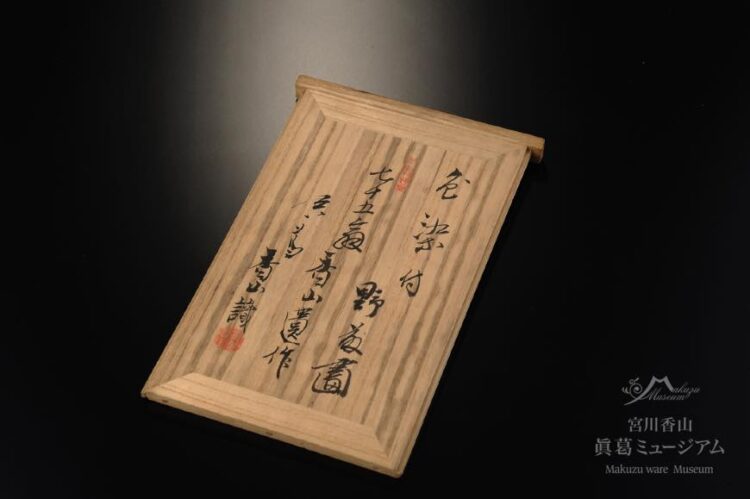 色染付
野菊画
七十五翁
香山遺作
真葛
香山識
Makuzu
Museum
宮川香山
眞葛ミュージアム
Makuzu ware Museum